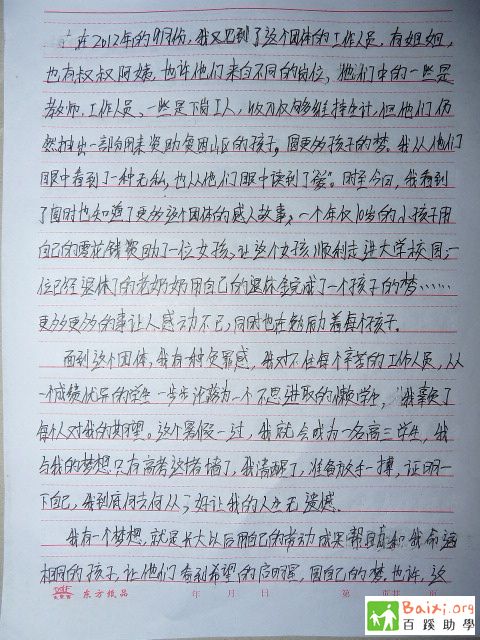 在2012年的9月份，我又见到了这个团体的工作人员，有姐姐，
也有叔叔阿姨，也许他们来自不同的岗位，他们中的一些是
教师，工作人员，一些是下岗工人，收入仅够维持生计，但他们仍
然抽出一部分用来资助贫困山区的孩子，圆更多孩子的梦。我从他们
眼中看到了一种无私，也从他们眼中读到了"爱"。时至今日，我看到
了同时也知道了更多这个团体的感人故事，一个年仅10岁的小孩子用
自己的零花钱资助了一位女孩，让这个女孩顺利走进大学校园；一
位已经退休了的老奶奶用自己的退休金完成了一个孩子的梦……
更多更多的事让人感动不已，同时也在勉励着每个孩子。
面对这个团体，我有一种负罪感，我对不住每个辛苦的工作人员，从
一个成绩优异的学生一步步沦落为一个不思进取的懒学生，我辜负了
每个人对我的期望。这个暑假一过，我就会成为一名高三学生，我
与我的梦想只有高考这堵墙了，我清醒了，准备放手一搏，证明一
下自己，我到底何去何从？好让我的人生无遗憾。
我有一个梦想，就是长大以后用自己的劳动成果帮助和我命运
相同的孩子，让他们看到希望的启明星，圆自己的梦。也许，这
东方纸品
年 月 日
第 页 共 页
Baixi.org
百蹊助学